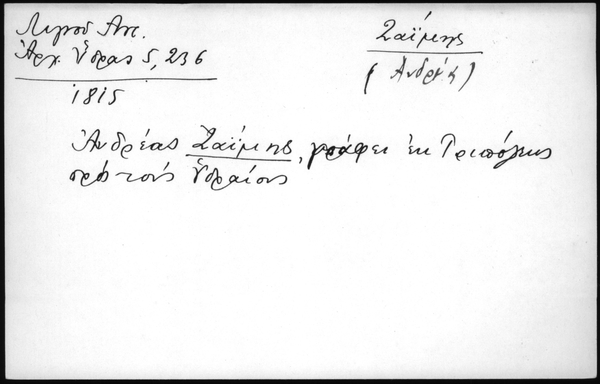 Λιγνοῦ Ἀντ.
Ἀρχ. Ὕδρας 5, 236
1815
Ζαΐμης
(Ἀνδρέας)
Ἀνδρέας Ζαΐμης, γράφει ἐκ Τριπόλεως
πρὸς τοὺς Ὑδραίους